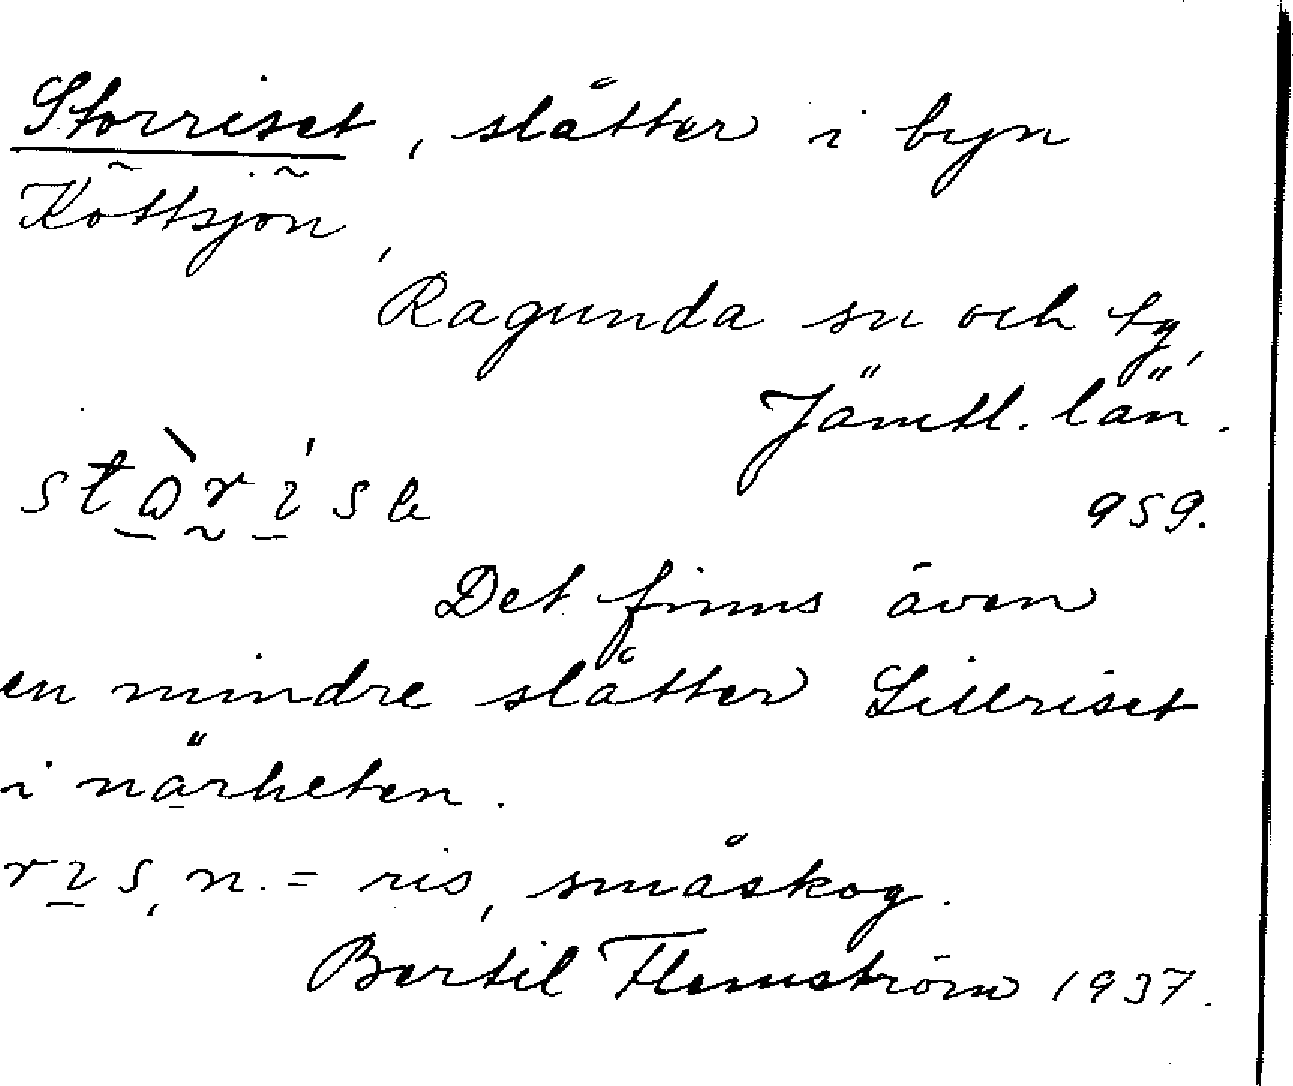 Storriset, slåtter i byn
Köttsjön,
Ragunda sn och tg,
Jämtl. län.
959.
Det finns även
en mindre slåtter Lillriset
i närheten.
ris, n. = ris, småskog.
Bertil Flemström 1937.